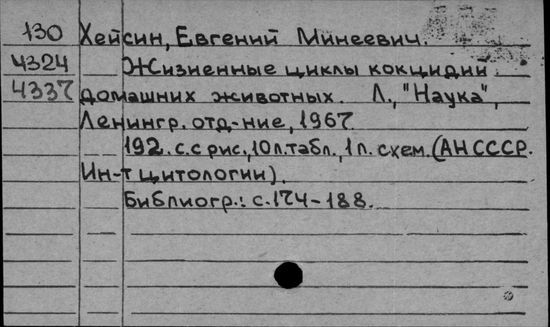 130 Хейсин, Евгений Минеевич.
4324 Жизненные циклы кокцидий
4337 домашних животных. Л., "Наука",
Ленингр. отд-ние, 1967.
192. с. с рис., 10 л. табл., 1 л. схем. (АН СССР.
Ин-т цитологии).
Библиогр.: с. 174-188.